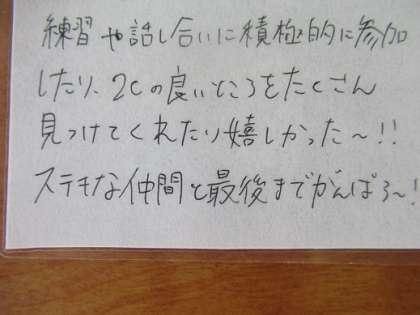 練習や話し合いに積極的に参加
したり、2Cの良いところをたくさん
見つけてくれたり嬉しかった〜!!
ステキな仲間と最後までがんばろ〜!